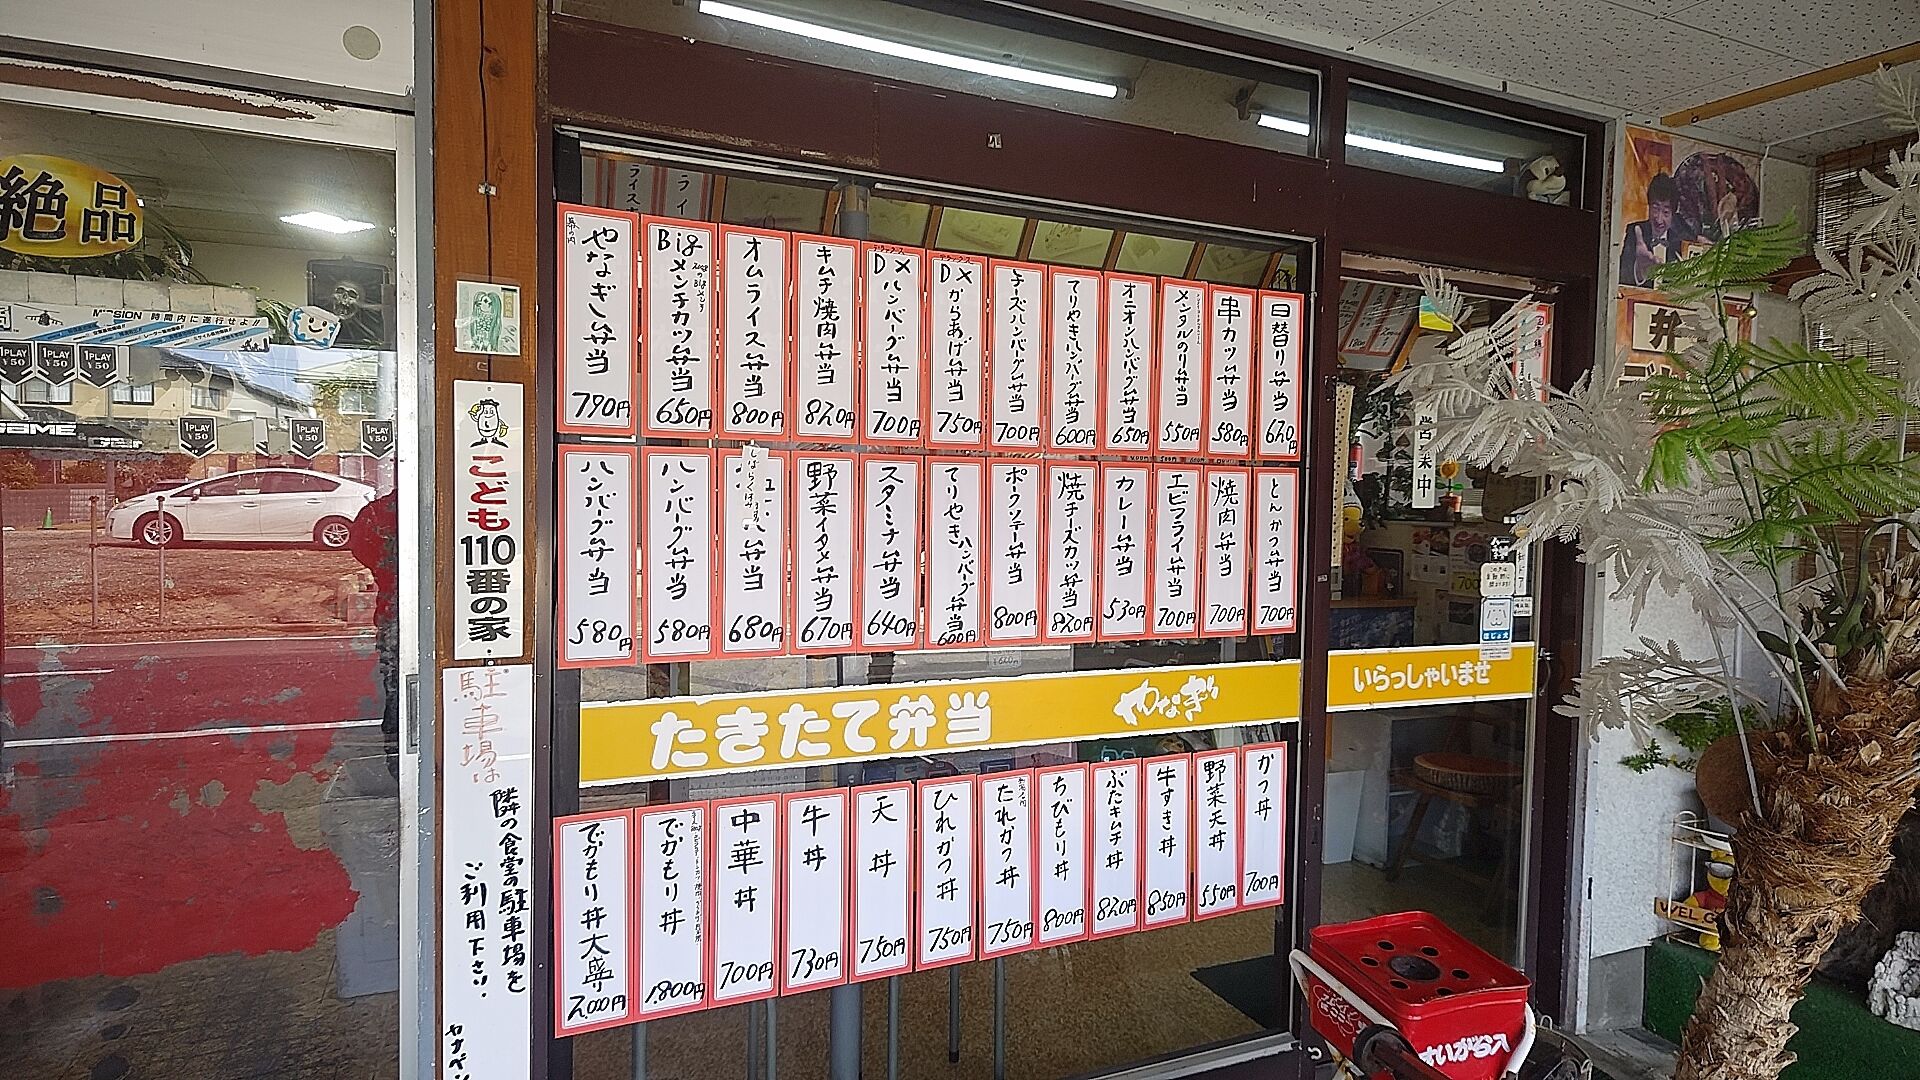 絶品
MISSION 時間内に遂行せよ!!
1PLAY ¥50
1PLAY ¥50
1PLAY ¥50
1PLAY ¥50
1PLAY ¥50
1PLAY ¥50
こども110番の家
駐車場は
隣の食堂の駐車場を
ご利用下さい。
日替り弁当 620円
串カツ弁当 580円
メンタルのり弁当 550円
オニオンハンバーグ弁当 650円
てりやきハンバーグ弁当 600円
チーズハンバーグ弁当 700円
デラックス
DXからあげ弁当 750円
デラックス
DXハンバーグ弁当 700円
キムチ焼肉弁当 820円
オムライス弁当 800円
Bigメンチカツ弁当 650円
やなぎ弁当 790円
とんかつ弁当 700円
焼肉弁当 700円
エビフライ弁当 700円
カレー弁当 530円
焼チーズカツ弁当 820円
ポークソテー弁当 800円
てりやきハンバーグ弁当 600円
スタミナ弁当 640円
野菜イタメ弁当 670円
弁当 680円
ハンバーグ弁当 580円
ハンバーグ弁当 580円
たきたて弁当 やなぎ
いらっしゃいませ
かつ丼 700円
野菜天丼 550円
牛すき丼 850円
ぶたキムチ丼 820円
ちびもり丼 800円
たれかつ丼 750円
ひれかつ丼 750円
天丼 750円
牛丼 730円
中華丼 700円
でかもり丼 1,800円
でかもり丼大盛り 2,000円
営業中
すいがら入